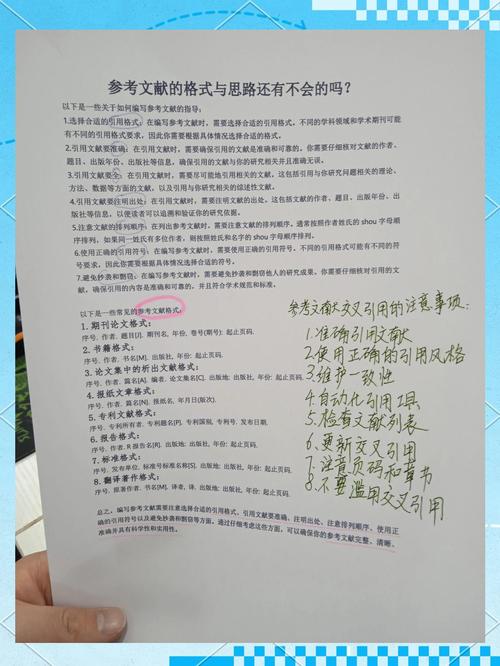 参考文献的格式与思路还有不会的吗？
以下是一些关于如何编写参考文献的指导：
1.选择合适的引用格式：在编写参考文献时，需要选择合适的引用格式。不同的学科领域和学术期刊可能
有不同的引用格式要求，因此你需要根据具体情况选择合适的格式。
2.引用文献要准确：在引用文献时，需要确保引用的文献是准确和可靠的。你需要仔细核对文献的作者、
题目、出版年份、出版社等信息，确保引用的文献与你的研究相关并且准确无误。
3.引用文献要全：在引用文献时，需要尽可能地引用相关的文献。这包括引用与你研究问题相关的理论、
方法、数据等方面的文献，以及引用与你研究相关的综述性文献。
4.引用文献要注明出处：在引用文献时，需要注明文献的出处。这包括文献的作者、题目、出版年份、出
版社等信息，以便读者可以追溯和验证你的研究依据。
5.注意文献的排列顺序：在列出参考文献时，需要注意文献的排列顺序。通常按照作者姓氏的 shou 字母顺
序排列，如果同一姓氏有多位作者，则按照姓氏和名字的 shou 字母顺序排列。
6.使用正确的引用符号：在编写参考文献时，需要使用正确的引用符号。不同的引用格式可能有不同的符
号要求，因此你需要根据具体情况选择合适的符号。
7.避免抄袭和剽窃：在编写参考文献时，需要避免抄袭和剽窃他人的研究成果。你需要仔细核对引用的文
献，确保引用的内容是准确和可靠的，并且符合学术规范和标准。
以下是一些常见的参考文献格式：
1. 期刊论文格式：
序号. 作者. 题目[J]. 期刊名, 年份, 卷号(期号): 起止页码.
2. 书籍格式：
序号. 作者. 书名[M]. 出版地: 出版社, 年份: 起止页码.
3. 论文集中的析出文献格式：
序号. 作者. 篇名[A]. 编者. 论文集名[C]. 出版地: 出版社, 年份: 起止页码.
4. 报纸文章格式：
序号. 作者. 篇名[N]. 报纸名, 年月日(版次).
5. 专利文献格式：
序号. 专利所有者. 专利题名[P]. 专利国别, 专利号. 发布日期.
6. 报告格式：
序号. 作者. R 报告名[R]. 出版地: 出版社, 年份: 起止页码.
7. 标准格式：
序号. 发布单位. 标准号标准名称[S]. 出版地: 出版社, 年份: 起止页码.
8. 翻译著作格式：
序号. 原著作者. 书名[M]. 译者, 译. 出版地: 出版社, 年份: 起止页码.
总之，编写参考文献需要注意选择合适的引用格式、引用文献要准确、注明出处、注意排列顺序、使用正
确的引用符号以及避免抄袭和剽窃等方面。通过仔细考虑这些方面，可以确保你的参考文献完整、清晰、
准确并具有科学性和实用性。
参考文献交叉引用的注意事项：
1.准确引用文献
2.使用正确的引用风格
3.维护一致性
4.自动化引用工具
5.检查文献列表
6.更新交叉引用
7.注意页码和章节
8.不要滥用交叉引用